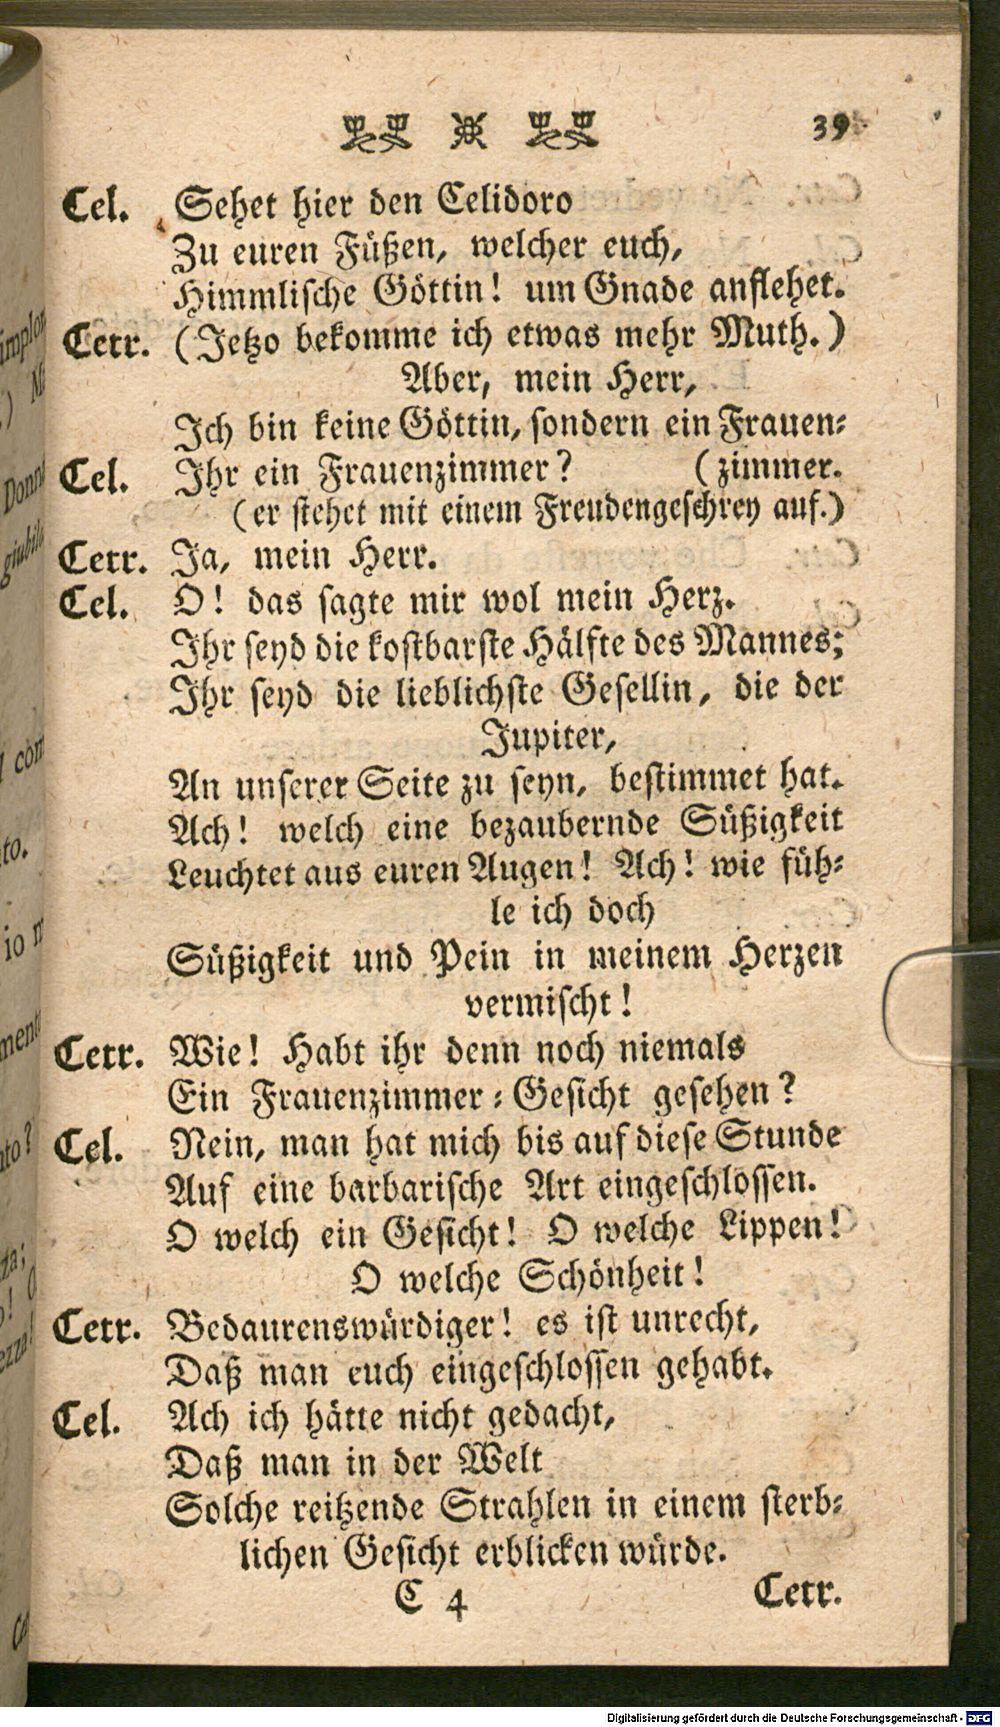 39
Cel. Sehet hier den Celidoro
Zu euren Füßen, welcher euch,
Himmlische Göttin! um Gnade anflehet.
Cetr. (Jetzo bekomme ich etwas mehr Muth.)
Aber, mein Herr,
Ich bin keine Göttin, sondern ein Frauen-
Cel. Ihr ein Frauenzimmer? (zimmer.
(er stehet mit einem Freudengeschrey auf.)
Cetr. Ja, mein Herr.
Cel. O! das sagte mir wol mein Herz.
Ihr seyd die kostbarste Hälfte des Mannes;
Ihr seyd die lieblichste Gesellin, die der
Jupiter,
An unserer Seite zu seyn, bestimmet hat.
Ach! welch eine bezaubernde Süßigkeit
Leuchtet aus euren Augen! Ach! wie füh-
le ich doch
Süßigkeit und Pein in meinem Herzen
vermischt!
Cetr. Wie! Habt ihr denn noch niemals
Ein Frauenzimmer-Gesicht gesehen?
Cel. Nein, man hat mich bis auf diese Stunde
Auf eine barbarische Art eingeschlossen.
O welch ein Gesicht! O welche Lippen!
O welche Schönheit!
Cetr. Bedaurenswürdiger! es ist unrecht,
Daß man euch eingeschlossen gehabt.
Cel. Ach ich hätte nicht gedacht,
Daß man in der Welt
Solche reitzende Strahlen in einem sterb-
lichen Gesicht erblicken würde.
C 4 Cetr.
Digitalisierung gefördert durch die Deutsche Forschungsgemeinschaft - DFG